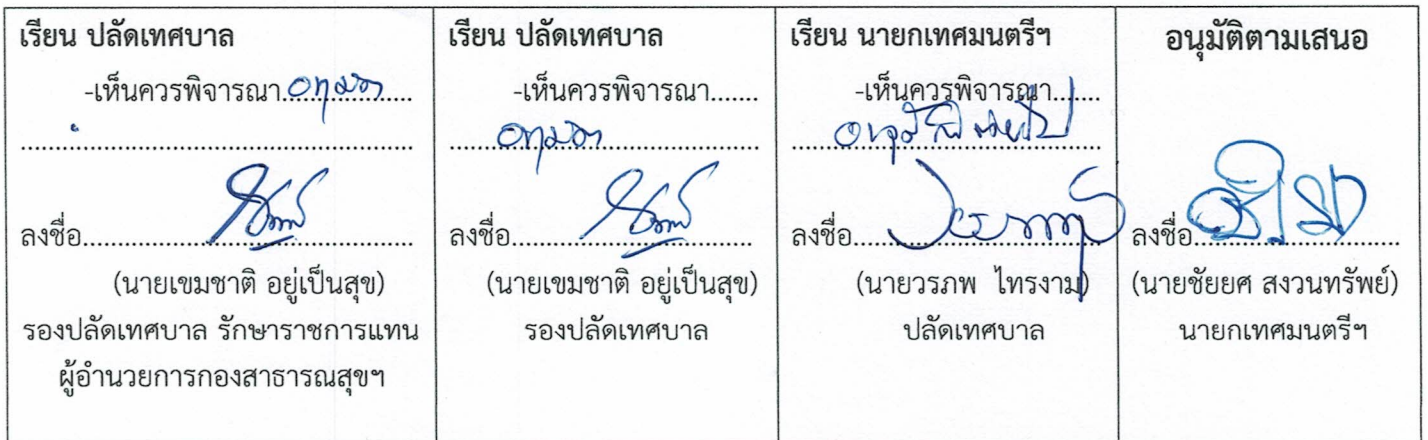 เรียน ปลัดเทศบาล
-เห็นควรพิจารณา..................
.......................................................
ลงชื่อ..............................................
(นายเขมชาติ อยู่เป็นสุข)
รองปลัดเทศบาล รักษาราชการแทน
ผู้อำนวยการกองสาธารณสุขฯ
เรียน ปลัดเทศบาล
-เห็นควรพิจารณา.......
...........................................
ลงชื่อ.................................
(นายเขมชาติ อยู่เป็นสุข)
รองปลัดเทศบาล
เรียน นายกเทศมนตรีฯ
-เห็นควรพิจารณา.......
...........................................
ลงชื่อ...................................
(นายวรภพ ไทรงาม)
ปลัดเทศบาล
อนุมัติตามเสนอ
ลงชื่อ.............................
(นายชัยยศ สงวนทรัพย์)
นายกเทศมนตรีฯ